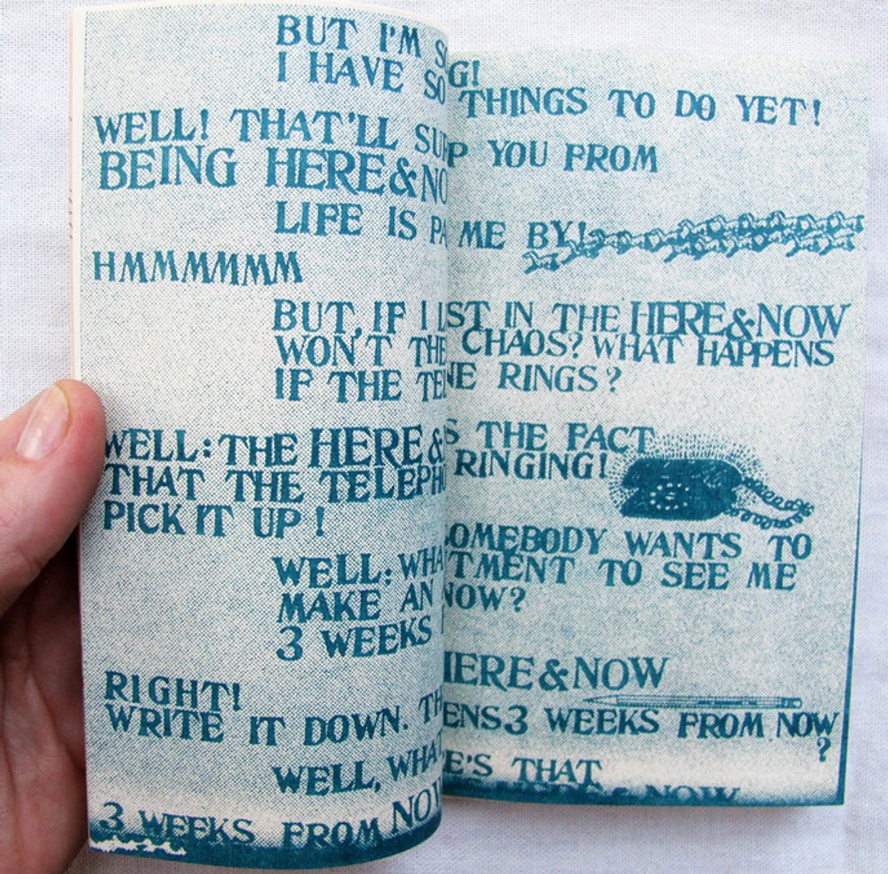 BUT I'M S G!
I HAVE SO THINGS TO DO YET!
WELL! THAT'LL SU P YOU FROM
BEING HERE&NO
LIFE IS PA ME BY!
HMMMMMM
BUT, IF I L ST IN THE HERE&NOW
WON'T THE CHAOS? WHAT HAPPENS
IF THE TEL NE RINGS?
WELL: THE HERE & S THE FACT
THAT THE TELEPH RINGING!
PICK IT UP!
WELL: WHA OMEBODY WANTS TO
MAKE AN TMENT TO SEE ME
3 WEEKS NOW?
RIGHT! HERE&NOW
WRITE IT DOWN. TH ENS 3 WEEKS FROM NOW
?
WELL, WHAT E'S THAT
3 WEEKS FROM NOW